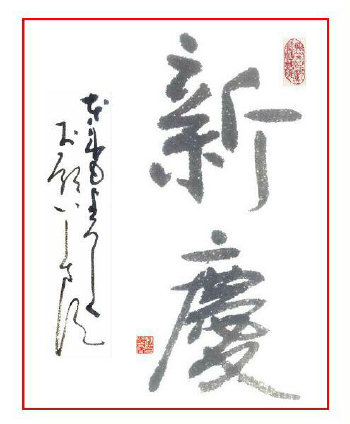 新慶
本年もよろしく
お願いします